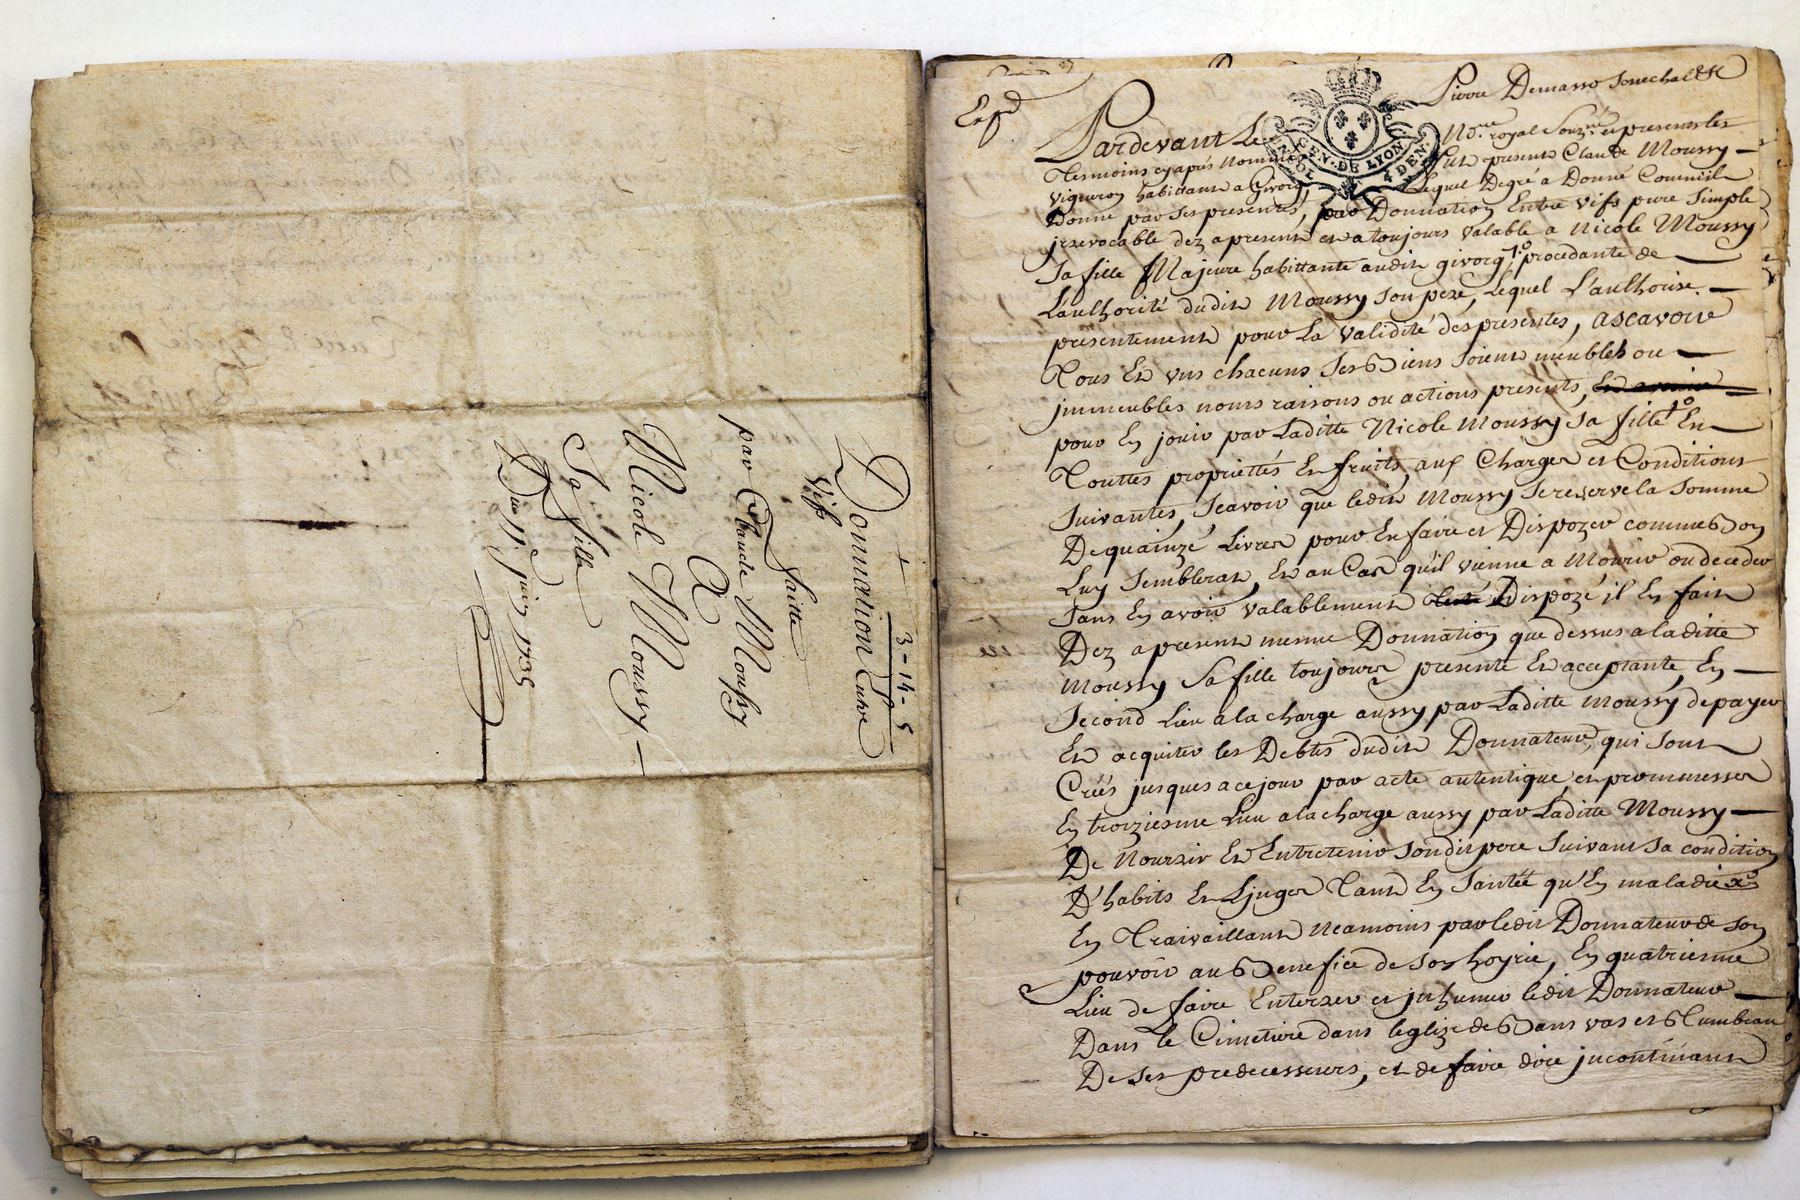 3-14-5
Donnation Entre
Vifs
faitte
par Claude Moussy
A
Nicole Moussy
Sa fille
Du 11e juin 1735
Exp.d
Pierre Demasso Senechal
GEN. DE LYON
4 DEN.
Pardevant Le No.re royal Souz.né et presents les
Tesmoins cy aprés nommés fut present Claude Moussy
Vigneron habittant a Givorg, Lequel Degré a Donné Comme il
Donne par ses presentes, par Donnation Entre vifs pure Simple
jrrevocable dez a present et a toujours valable a Nicole Moussy
Sa fille Majeure habittante audit givorg procedante de
L'authorité dudit Moussy Son pere, Lequel L'authorise
presentement pour La validité des presentes, ascavoir
Tous Et vns chacuns Ses Biens Soient meubles ou
jmmeubles noms raisons ou actions presents,
pour En jouir par Laditte Nicole Moussy Sa fille En
Touttes proprietés En fruits, aux Charges et Conditions
Suivantes, Scavoir que ledit Moussy Se reserve la Somme
De quainze Livres pour En faire et Dispozer comme Bon
Luy Semblerat, Et au Cas qu'il vienne a Mourir ou deceder
Sans En avoir valablement Dispozé il En fait
Dez a present mesme Donnation que dessus a laditte
Moussy Sa fille toujours presente Et acceptante, En
Second Lieu a la charge aussy par Laditte Moussy de payer
Et acquiter les Debtes dudit Donnateur, qui Sont
Créés jusques a ce jour par acte autentique, et prommesses
En troiziesme Lieu a la charge aussy par Laditte Moussy
De Nourrir Et Entretenir Sondit pere Suivant Sa condition
D'habits Et Linges Tant En Santté qu'En maladie
En Traivaillant Neamoins par ledit Donnateur de Son
pouvoir au Benefice de Son hoyrie, En quatrieme
Lieu de faire Enterrer et jnhumer ledit Donnateur
Dans le Cimetiere dans leglize de Bans vas et Tumbeau
De Ses predecesseurs, et de faire dire jncontinant